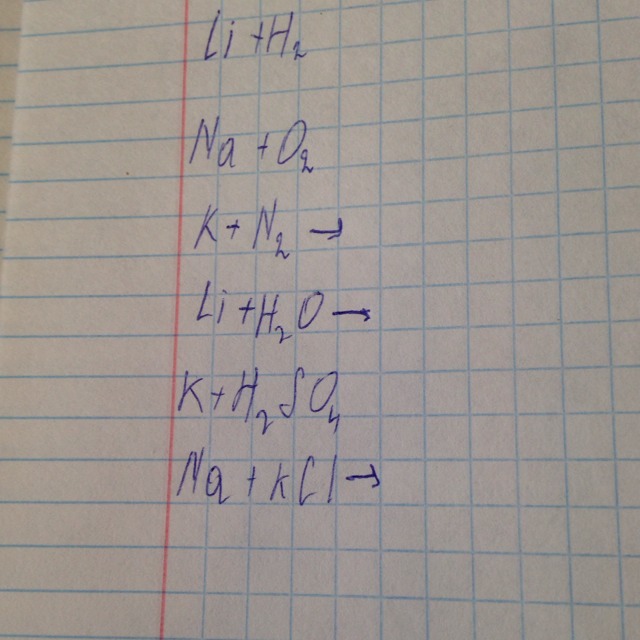 Li + H₂
Na + O₂
K + N₂ →
Li + H₂O →
K + H₂SO₄
Na + KCl →